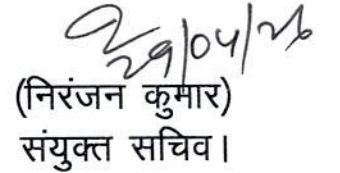 29/04/26
(निरंजन कुमार)
संयुक्त सचिव।